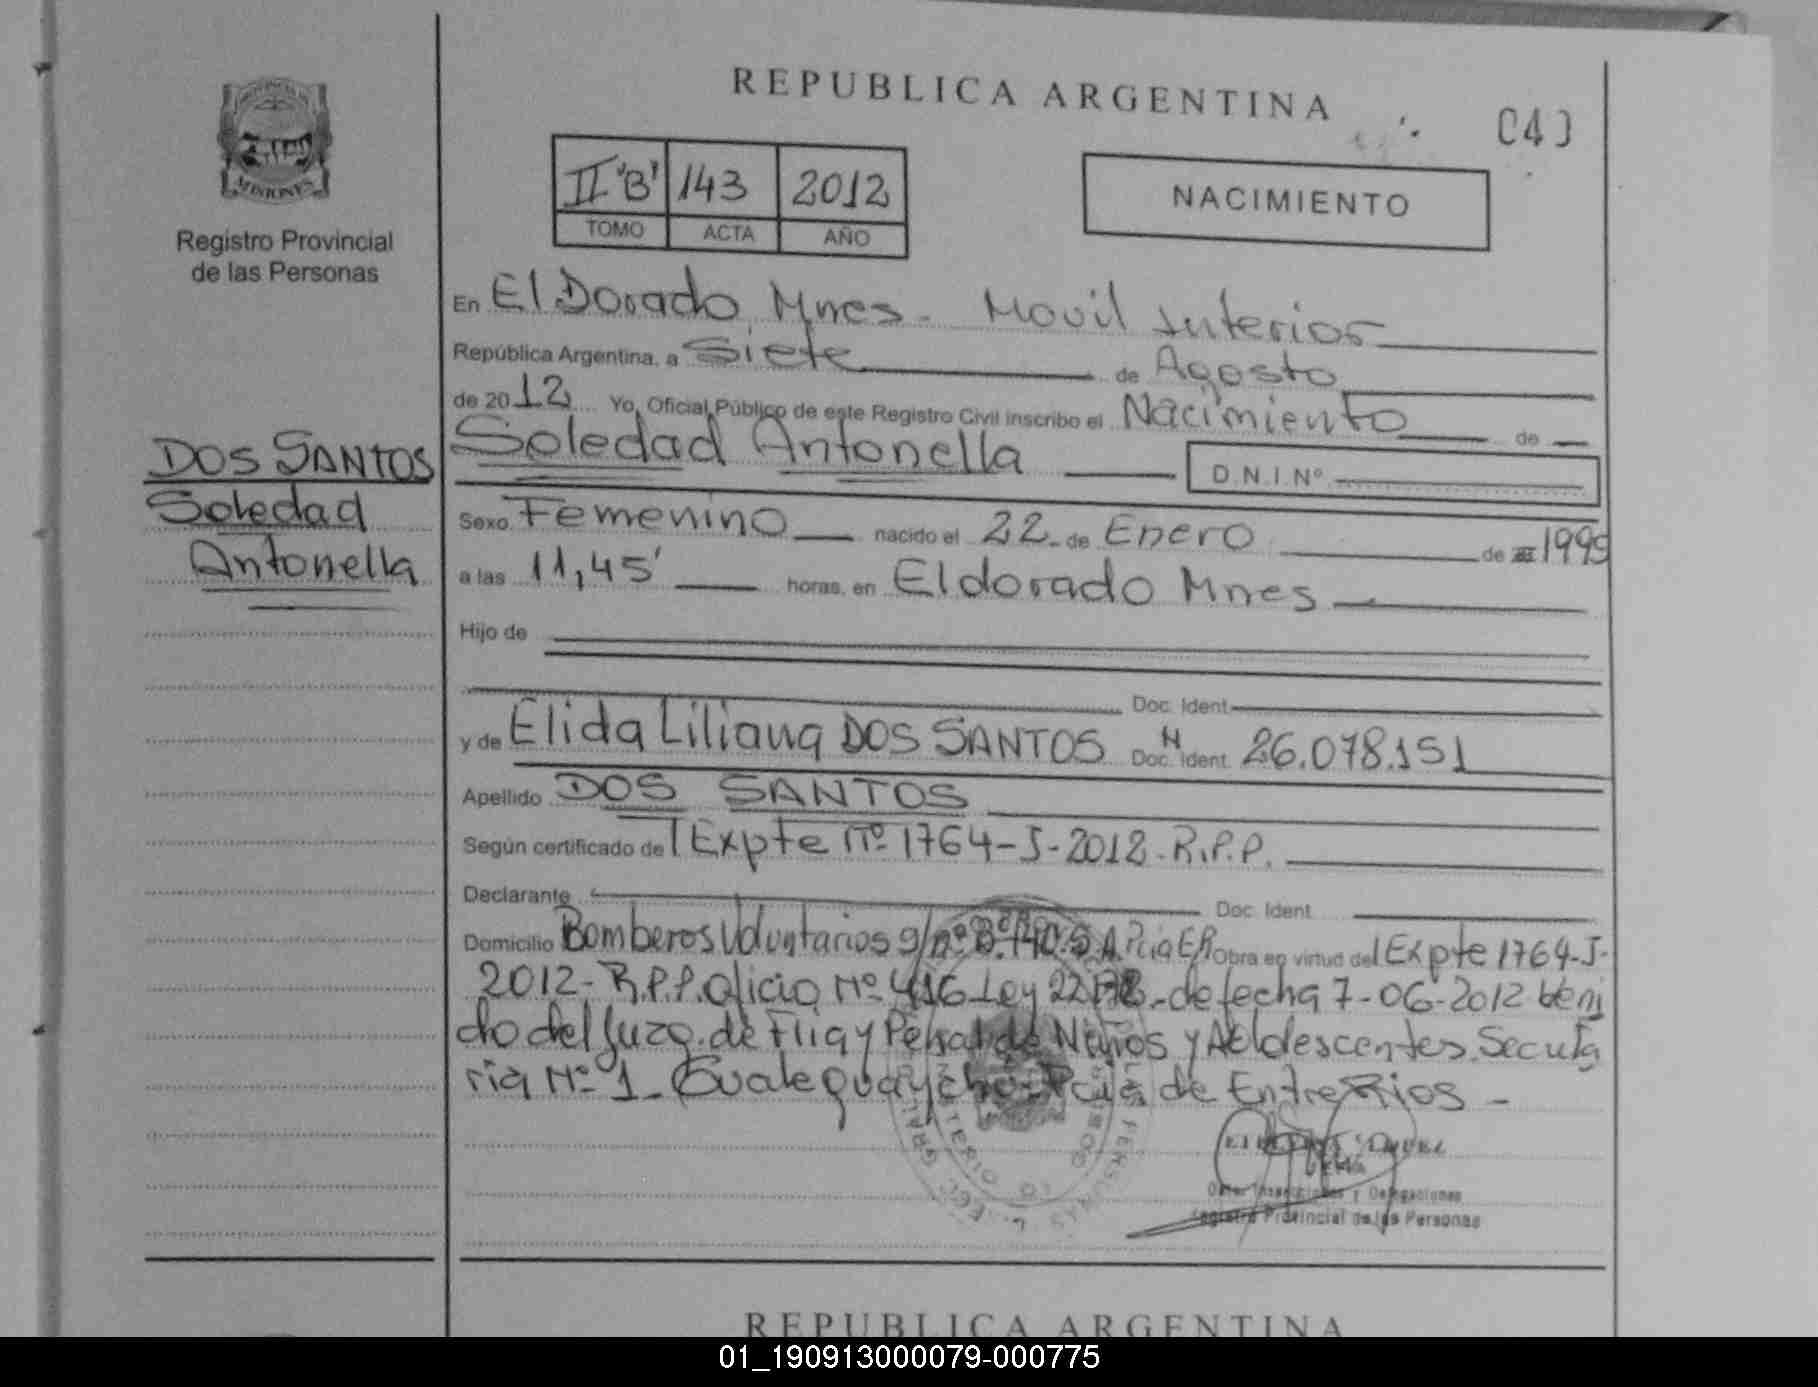 REPUBLICA ARGENTINA
043
MISIONES
Registro Provincial
de las Personas
II "B" 143 2012
TOMO ACTA AÑO
NACIMIENTO
En ElDorado, Mnes. Movil Interior
República Argentina, a Siete de Agosto
de 2012 Yo, Oficial Público de este Registro Civil inscribo el Nacimiento de
Soledad Antonella D.N.I.Nº
DOS SANTOS
Soledad
Antonella
Sexo Femenino nacido el 22 de Enero de 1995
a las 11,45' horas, en Eldorado Mnes
Hijo de
Doc. Ident.
y de Elida Liliana DOS SANTOS Doc. Ident. M 26.078.151
Apellido DOS SANTOS
Según certificado del Expte nº 1764-J-2012-R.P.P.
Declarante Doc. Ident.
Domicilio Bomberos Voluntarios Pcia E.R Obra en virtud del Expte 1764-J-
2012-R.P.P. Oficio Nº 416 Ley 22172 de fecha 7-06-2012 Veni
do del Juzg. de Flia y Penal de Niños y Adolescentes Secreta
ria Nº 1 Gualeguaychu Pcia de Entre Rios -
Inscripciones y Delegaciones
Registro Provincial de las Personas
REPUBLICA ARGENTINA
01_190913000079-000775